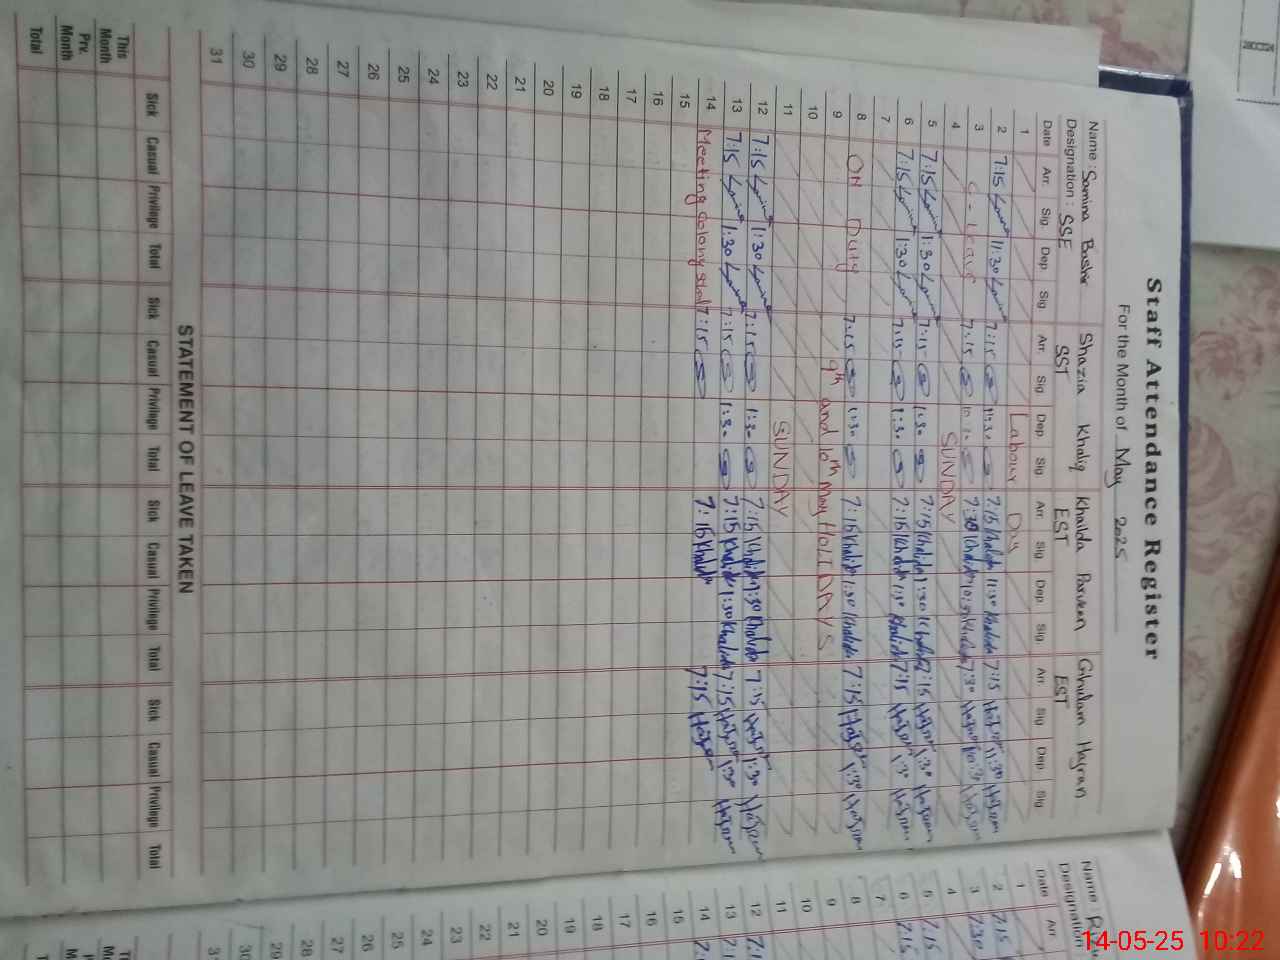 Staff Attendance Register
For the Month of May 2025
Name : Samina Bashir Shazia Khaliq Khalida Parveen Ghulam Hajran
Designation : SSE SST EST EST
Date Arr. Sig Dep. Sig Arr. Sig Dep. Sig Arr. Sig. Dep. Sig. Arr. Sig Dep. Sig
1 Labour Day
2 7:15 11:30 7:15 11:30 7:15 Khalida 11:30 Khalida 7:15 Hajran 11:30 Hajran
3 C-Leave 7:15 7:30 Khalida 10:30 Khalida 7:30 Hajran 10:30 Hajran
4 SUNDAY
5 7:15 1:30 7:15 1:30 7:15 Khalida 1:30 Khalida 7:15 Hajran 1:30 Hajran
6 7:15 1:30 7:15 1:30 7:15 Khalida 1:30 Khalida 7:15 Hajran 1:30 Hajran
7
8 ON Duty 7:15 1:30 7:15 Khalida 1:30 Khalida 7:15 Hajran 1:30 Hajran
9 9th and 10th May HOLIDAYS
10
11 SUNDAY
12 7:15 1:30 7:15 1:30 7:15 Khalida 1:30 Khalida 7:15 Hajran 1:30 Hajran
13 7:15 1:30 7:15 1:30 7:15 Khalida 1:30 Khalida 7:15 Hajran 1:30 Hajran
14 Meeting colony 7:15 7:15 Khalida 7:15 Hajran
15
16
17
18
19
20
21
22
23
24
25
26
27
28
29
30
31
STATEMENT OF LEAVE TAKEN
Sick Casual Privilege Total Sick Casual Privilege Total Sick Casual Privilege Total Sick Casual Privilege Total
This Month
Prv. Month
Total
Name :
Designation
Date Arr.
1
2 7:15
3 7:30
4
5 7:15
6 7:15
7
8
9
10
11
12
13
14
15
16
17
18
19
20
21
22
23
24
25
26
27
28
29
30
14-05-25 10:22